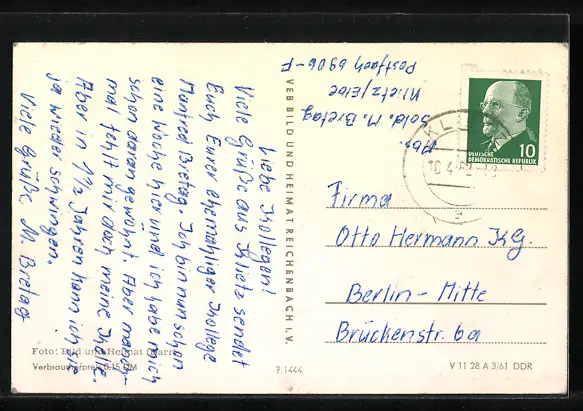 Liebe Kollegen!
Viele Grüße aus Klietz sendet
Euch Eurer ehemahliger Kollege
Manfred Bretag. Ich bin nun schon
eine Woche hier und ich habe mich
schon daran gewöhnt. Aber manch-
mal fehlt mir doch meine Kelle.
Aber in 1½ Jahren kann ich sie
ja wieder schwingen.
Viele Grüße M. Bretag
Abs.
Sold. M. Bretag
Klietz/Elbe
Postfach 6906-F
VEB BILD UND HEIMAT REICHENBACH I. V.
DEUTSCHE
DEMOKRATISCHE REPUBLIK
10
KL
Firma
Otto Hermann KG.
Berlin-Mitte
Brückenstr. 6a
Foto: Bild und Heimat
Verbraucherpreis 0,15 DM
7/1444
V 11 28 A 3/61 DDR